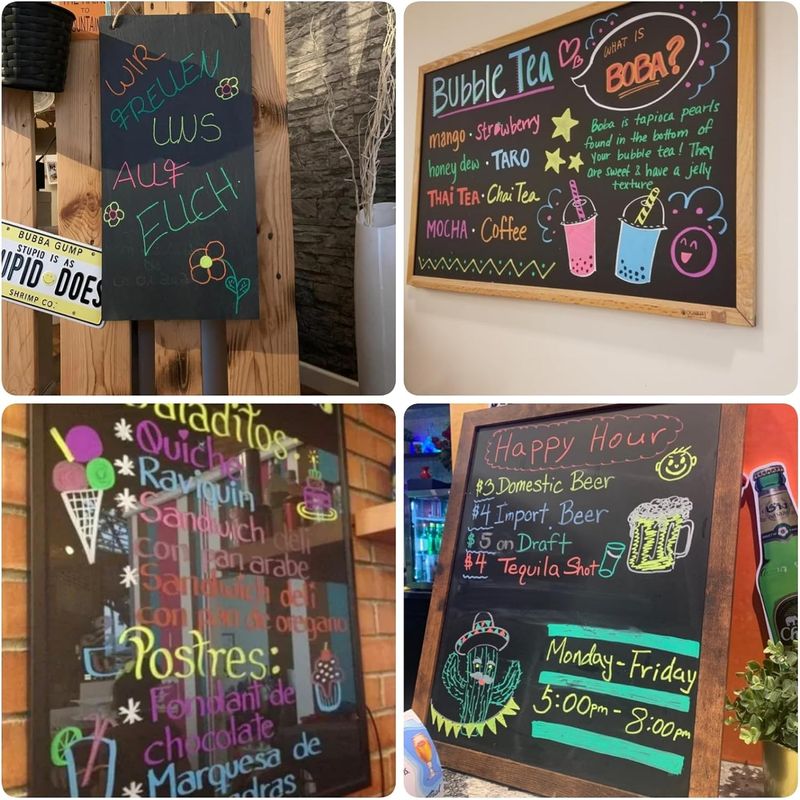 WIR
FREUEN
UNS
AUF
EUCH
BUBBA GUMP
STUPID IS AS
UPID DOES
SHRIMP CO.
BUBBLE Tea
WHAT IS
BOBA?
mango · strawberry
honey dew · TARO
THAI TEA · Chai Tea
MOCHA · Coffee
Boba is tapioca pearls
found in the bottom of
your bubble tea! They
are sweet & have a jelly
texture
Saladitos:
* Quiche
* Raviquin
* Sandwich deli
con pan arabe
* Sandwich deli
con pan de oregano
Postres:
* Fondant de
chocolate
* Marquesa de
Happy Hour
$3 Domestic Beer
$4 Import Beer
$5 on Draft
$4 Tequila Shot
Monday - Friday
5:00pm - 8:00pm